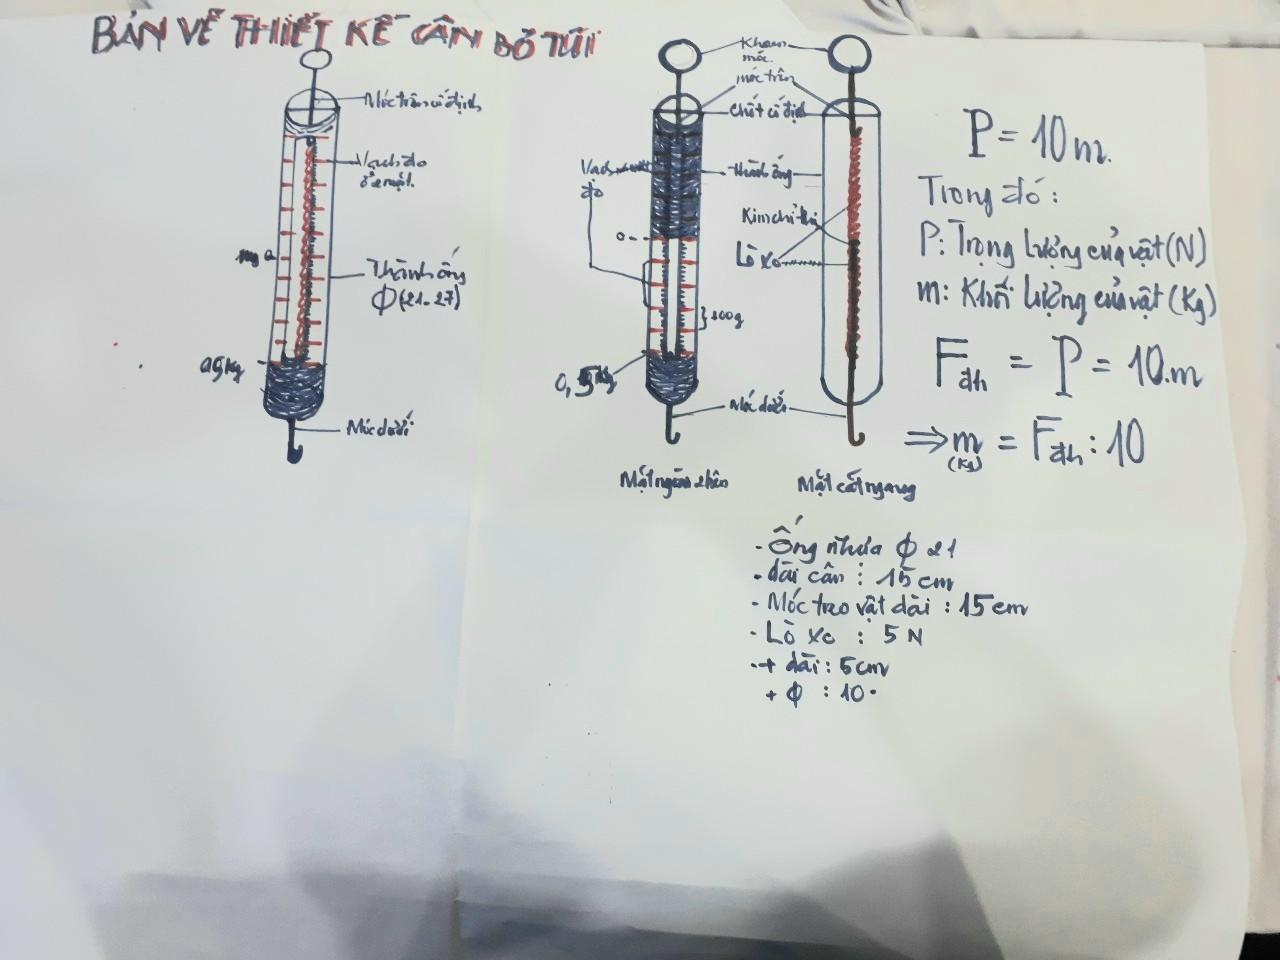 BẢN VẼ THIẾT KẾ CÂN BỎ TÚI
Móc trên cố định
Vạch đo
bề mặt.
Thành ống
Φ(21-27)
0,5Kg
Móc dưới
móc.
móc trên
Chốt cố định
Vạch
đo
thành ống
Kim chỉ thị
0
Lò xo
100g
0,5Kg
Móc dưới
Mặt cắt ngang
P = 10m.
Trong đó:
P: Trọng lượng của vật (N)
m: Khối lượng của vật (Kg)
Fđh = P = 10.m
⇒ m = Fđh : 10
(Kg)
- Ống nhựa Φ 21
- dài cân : 15cm
- Móc treo vật dài : 15cm
- Lò xo : 5N
+ dài : 5cm
+ Φ : 10.